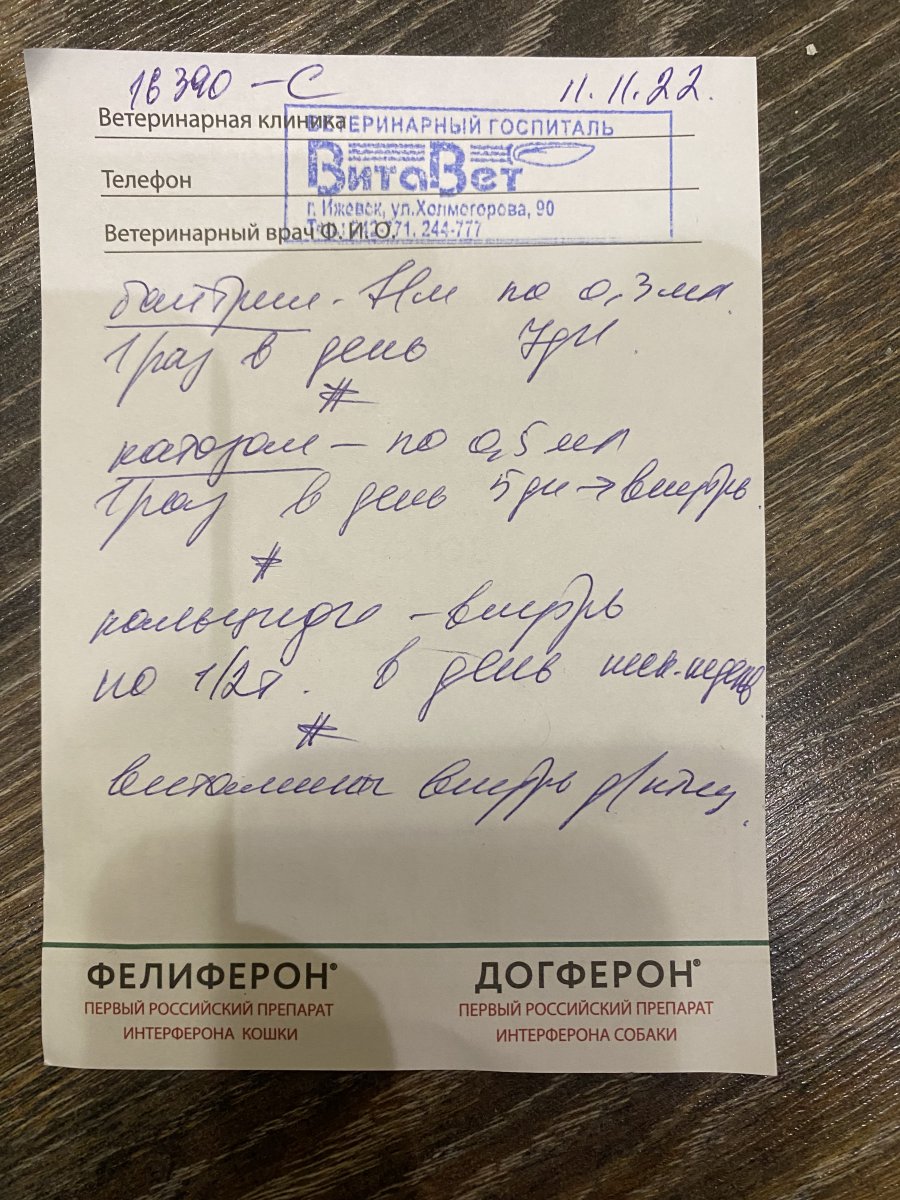 18390 - С 11.11.22.
Ветеринарная клиника
ВЕТЕРИНАРНЫЙ ГОСПИТАЛЬ
ВитаВет
Телефон
г. Ижевск, ул.Холмогорова, 90
244-777
Ветеринарный врач Ф. И. О.
байтрил - по 0,3 мл
1 раз в день 7 дн.
#
катозал - по 0,5 мл
1 раз в день 5 дн → внутрь.
#
- внутрь
по 1/2 т. в день неск. недель
#
витамины внутрь д/птиц.
ФЕЛИФЕРОН® ДОГФЕРОН®
ПЕРВЫЙ РОССИЙСКИЙ ПРЕПАРАТ ПЕРВЫЙ РОССИЙСКИЙ ПРЕПАРАТ
ИНТЕРФЕРОНА КОШКИ ИНТЕРФЕРОНА СОБАКИ